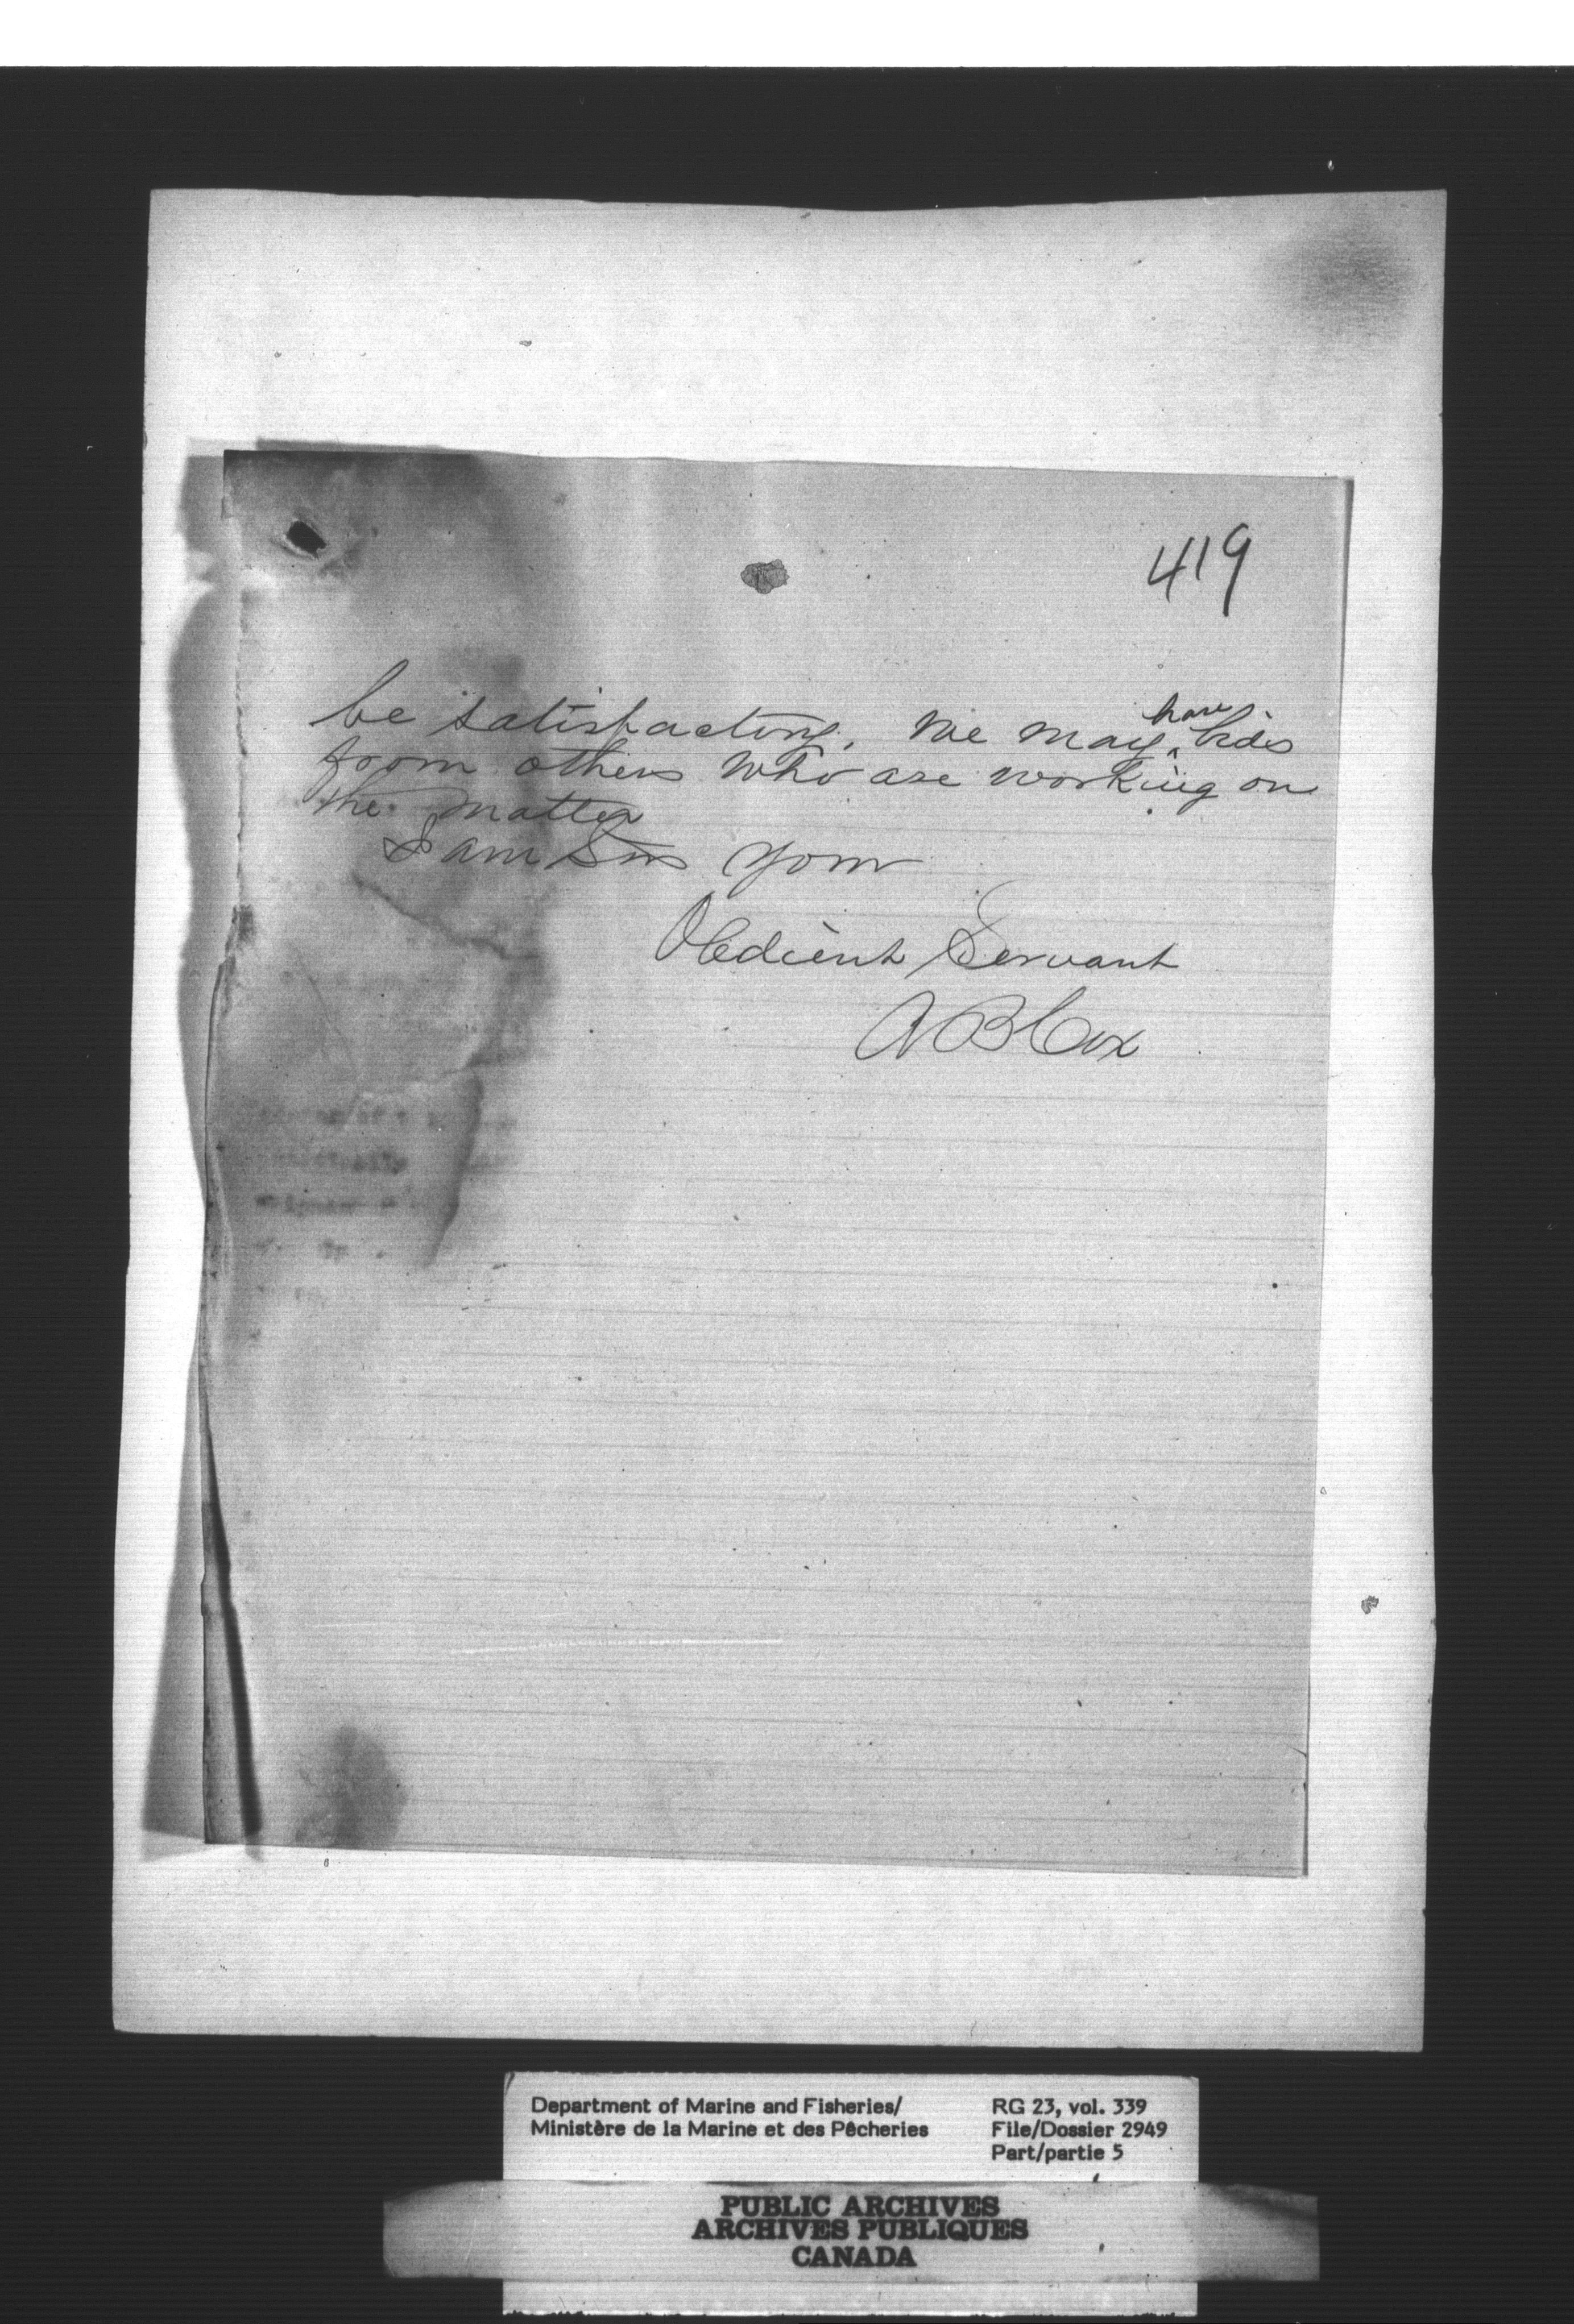 419
be satisfactory. We may have bids
from others who are working on
the matter
I am Sir your
Obedient Servant
A B Cox
Department of Marine and Fisheries/ RG 23, vol. 339
Ministère de la Marine et des Pêcheries File/Dossier 2949
Part/partie 5
PUBLIC ARCHIVES
ARCHIVES PUBLIQUES
CANADA